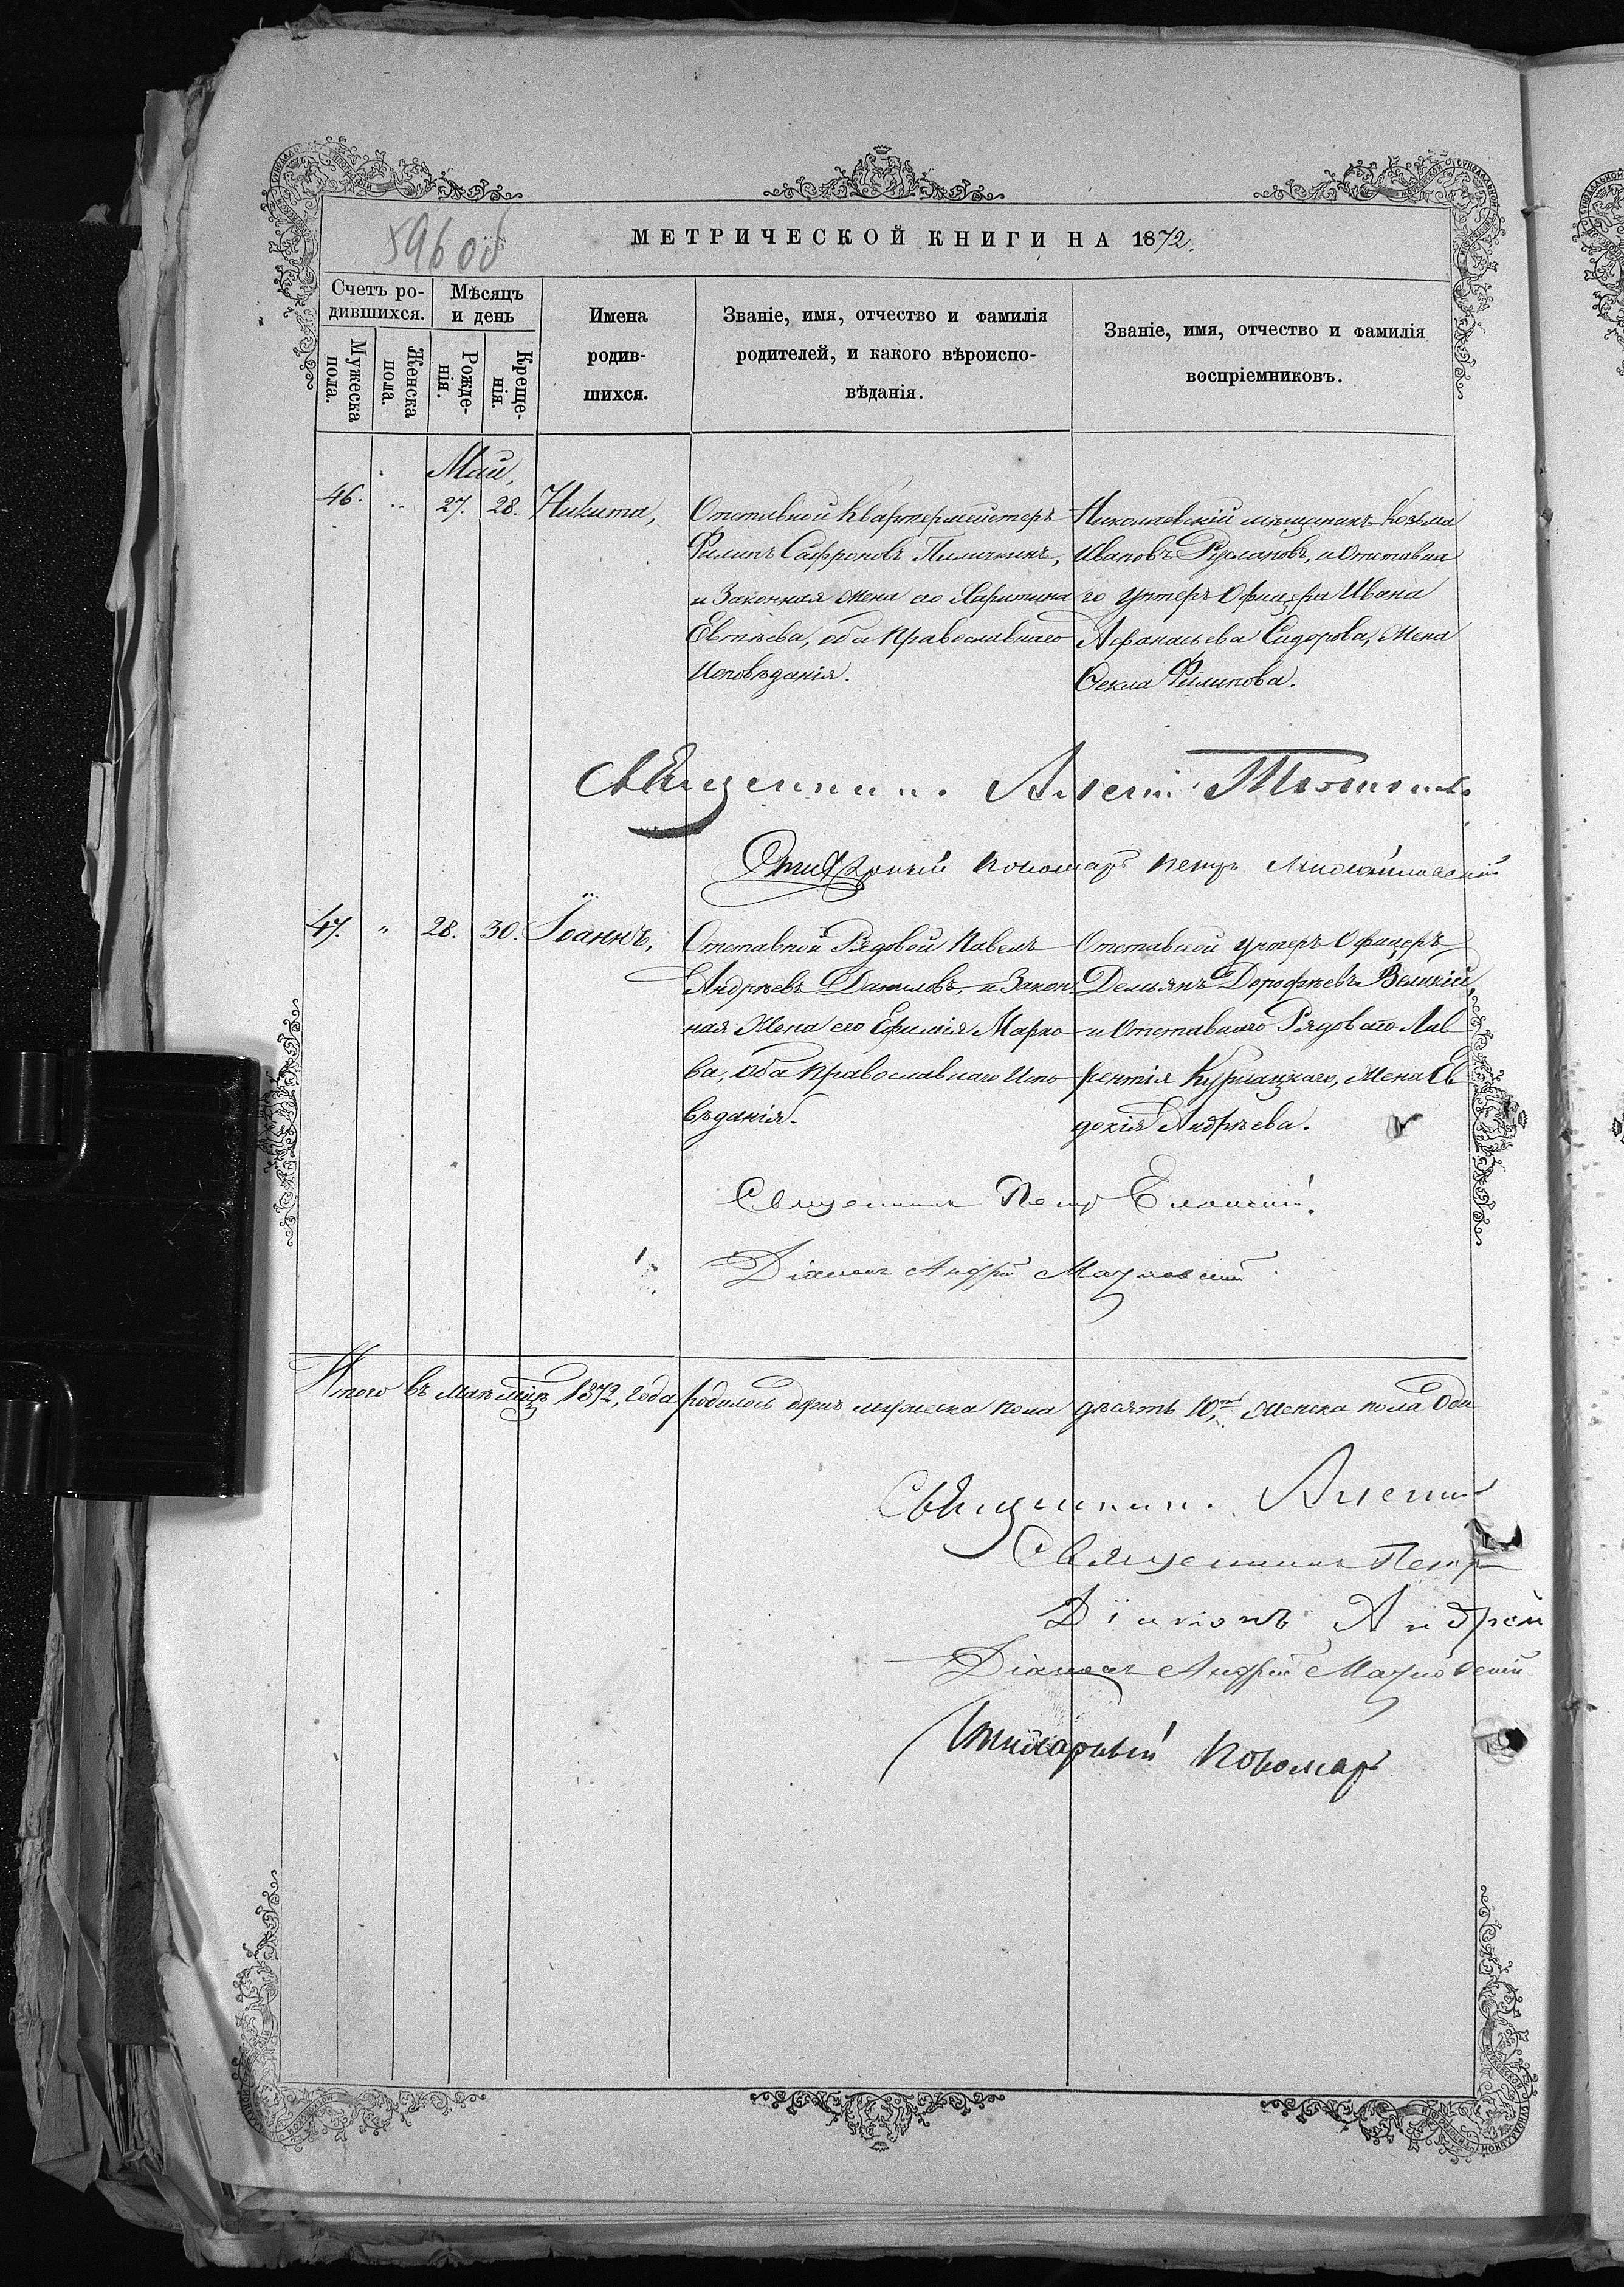 596 об
МЕТРИЧЕСКОЙ КНИГИ НА 1872.
Счетъ родившихся.
Мѣсяцъ и день
Имена родившихся.
Званіе, имя, отчество и фамилія родителей, и какого вѣроисповѣданія.
Званіе, имя, отчество и фамилія воспріемниковъ.
Мужеска пола.
Женска пола.
Рожденія.
Крещенія.
Май,
46. 27. 28. Никита,
Отставной Квартермейстеръ
Филипъ Сафроновъ Пиличкинъ,
и Законная жена его Харитина
Евтѣева, оба Православнаго
Исповѣданія.
Николаевскій мѣщанинъ Козьма
Ивановъ Руслановъ, и Отставна
го унтеръ Офицера Ивана
Афанасьева Сидорова, жена
Ѳекла Филипова.
Священникъ Алексій
Пономарь Петръ
47. " 28. 30. Іоаннъ,
Отставной Рядовой Павелъ
Андреевъ Даниловъ, и Закон
ная Жена его Ефимія Марко
ва, оба Православнаго Испо
вѣданія.
Отставной унтеръ Офицеръ
Демьянъ Дорофѣевъ Великій,
и Отставнаго Рядоваго Лав
рентія Курпацкаго, жена Ев
докія Андрѣева.
Священникъ Петръ Еланскій.
Діаконъ Андрей
Итого въ маѣ мѣсяцѣ 1872, года родилось душъ мужеска пола десять 10, женска пола Одн
Священникъ Алексій
Священникъ Петръ
Діаконъ Андрей
Діаконъ Андрей
Пономарь